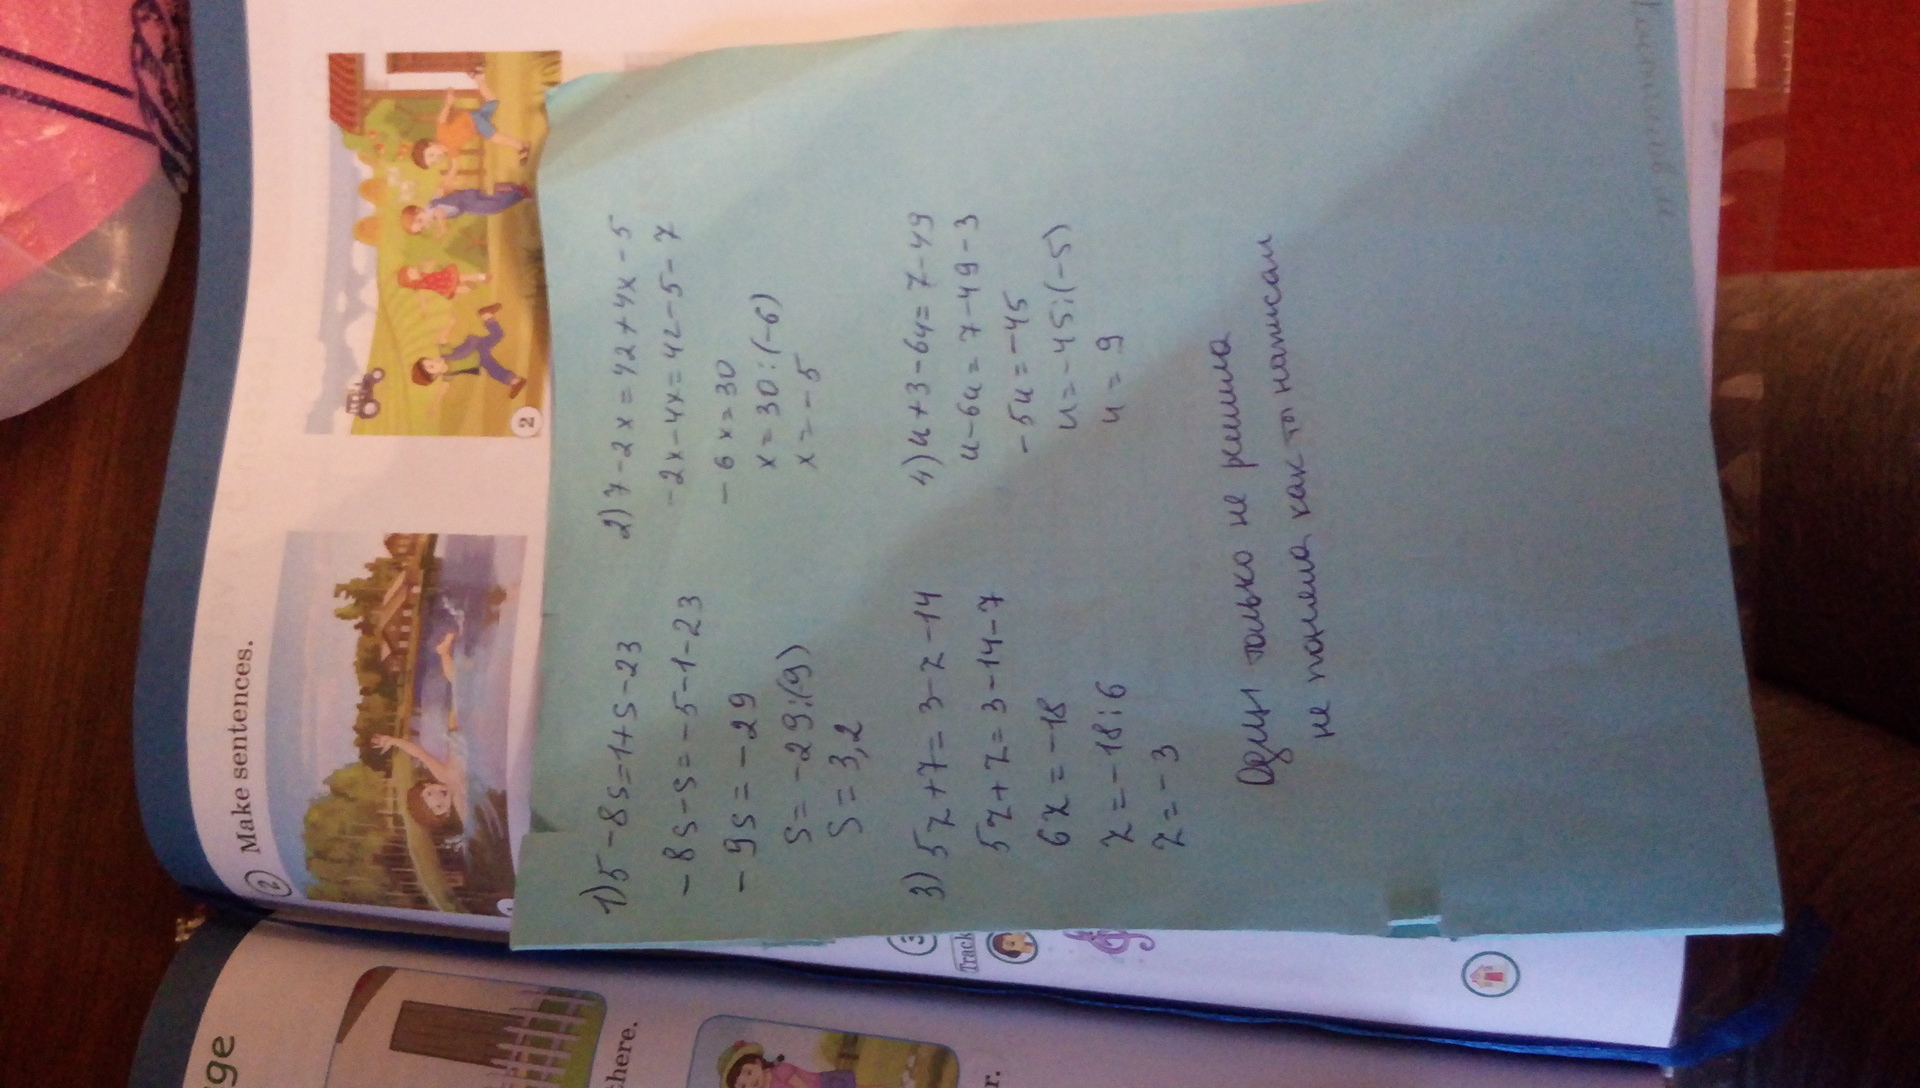 ge
there.
r.
2 Make sentences.
1
2
3
Track
1) 5 - 8s = 1 + s - 23
- 8s - s = - 5 - 1 - 23
- 9s = - 29
s = - 29 : (9)
s = 3,2
2) 7 - 2x = 42 + 4x - 5
- 2x - 4x = 42 - 5 - 7
- 6x = 30
x = 30 : (-6)
x = - 5
3) 5z + 7 = 3 - z - 14
5z + z = 3 - 14 - 7
6z = - 18
z = - 18 : 6
z = - 3
4) u + 3 - 6u = 7 - 49
u - 6u = 7 - 49 - 3
- 5u = - 45
u = - 45 : (-5)
u = 9
Один только не решила
не поняла как ты написал